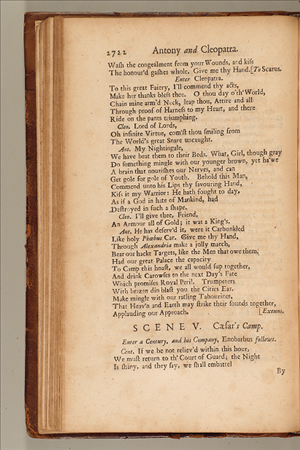 2722 Antony and Cleopatra.
Wash the congealment from your Wounds, and kiss
The honour'd gashes whole. Give me thy Hand. [To Scarus.
Enter Cleopatra.
To this great Faiery, I'll commend thy acts,
Make her thanks bless thee. O thou day o'th' World,
Chain mine arm'd Neck, leap thou, Attire and all
Through proof of Harness to my Heart, and there
Ride on the pants triumphing.
Cleo. Lord of Lords,
Oh infinite Virtue, com'st thou smiling from
The World's great Snare uncaught.
Ant. My Nightingale,
We have beat them to their Beds. What, Girl, though gray
Do something mingle with our younger brown, yet ha' we
A brain that nourishes our Nerves, and can
Get gole for gole of Youth. Behold this Man,
Commend unto his Lips thy favouring Hand,
Kiss it my Warrior: He hath fought to day,
As if a God in hate of Mankind, had
Destroyed in such a shape.
Cleo. I'll give thee, Friend,
An Armour all of Gold; it was a King's.
Ant. He has deserv'd it, were it Carbunkled
Like holy Phœbus Car. Give me thy Hand,
Through Alexandria make a jolly march,
Bear our hackt Targets, like the Men that owe them,
Had our great Palace the capacity
To Camp this hoast, we all would sup together,
And drink Carowses to the next Day's Fate
Which promises Royal Peril. Trumpeters
With brazen din blast you the Cities Ear,
Make mingle with our ratling Tabourines,
That Heav'n and Earth may strike their sounds together,
Applauding our Approach. [Exeunt.
SCENE V. Cæsar's Camp.
Enter a Century, and his Company, Enobarbus follows.
Cent. If we be not reliev'd within this hour,
We must return to th' Court of Guard; the Night
Is shiny, and they say, we shall embattel
By